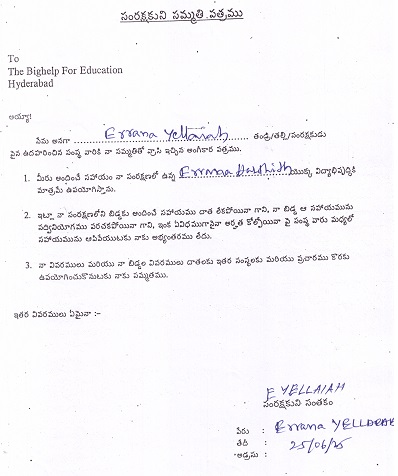 సంరక్షకుని సమ్మతి పత్రము
To
The Bighelp For Education
Hyderabad
అయ్యా!
నేను అనగా Errana Yellaiah తండ్రి/తల్లి/సంరక్షకుడు
పైన ఉదహరించిన సంస్థ వారికి నా సమ్మతితో వ్రాసి ఇచ్చిన అంగీకార పత్రము.
1. మీరు అందించే సహాయం నా సంరక్షణలో ఉన్న Errana యొక్క విద్యాభివృద్ధికి
మాత్రమే ఉపయోగిస్తాను.
2. ఇట్లా నా సంరక్షణలోని బిడ్డకు అందించే సహాయము దాత లేకపోయినా గాని, నా బిడ్డ ఆ సహాయమును
సద్వినియోగము పరచకపోయినా గాని, ఇంక ఏవిధముగానైనా అర్హత కోల్పోయినా పై సంస్థ వారు మధ్యలో
సహాయమును ఆపివేయుటకు నాకు అభ్యంతరము లేదు.
3. నా వివరములు మరియు నా బిడ్డల వివరములు దాతలకు ఇతర సంస్థలకు మరియు ప్రచారము కొరకు
ఉపయోగించుకొనుటకు నాకు సమ్మతము.
ఇతర వివరములు ఏమైనా :-
E YELLAIAH
సంరక్షకుని సంతకం
పేరు : Errana YELLAIAH
తేదీ : 25/06/25
అడ్రసు :